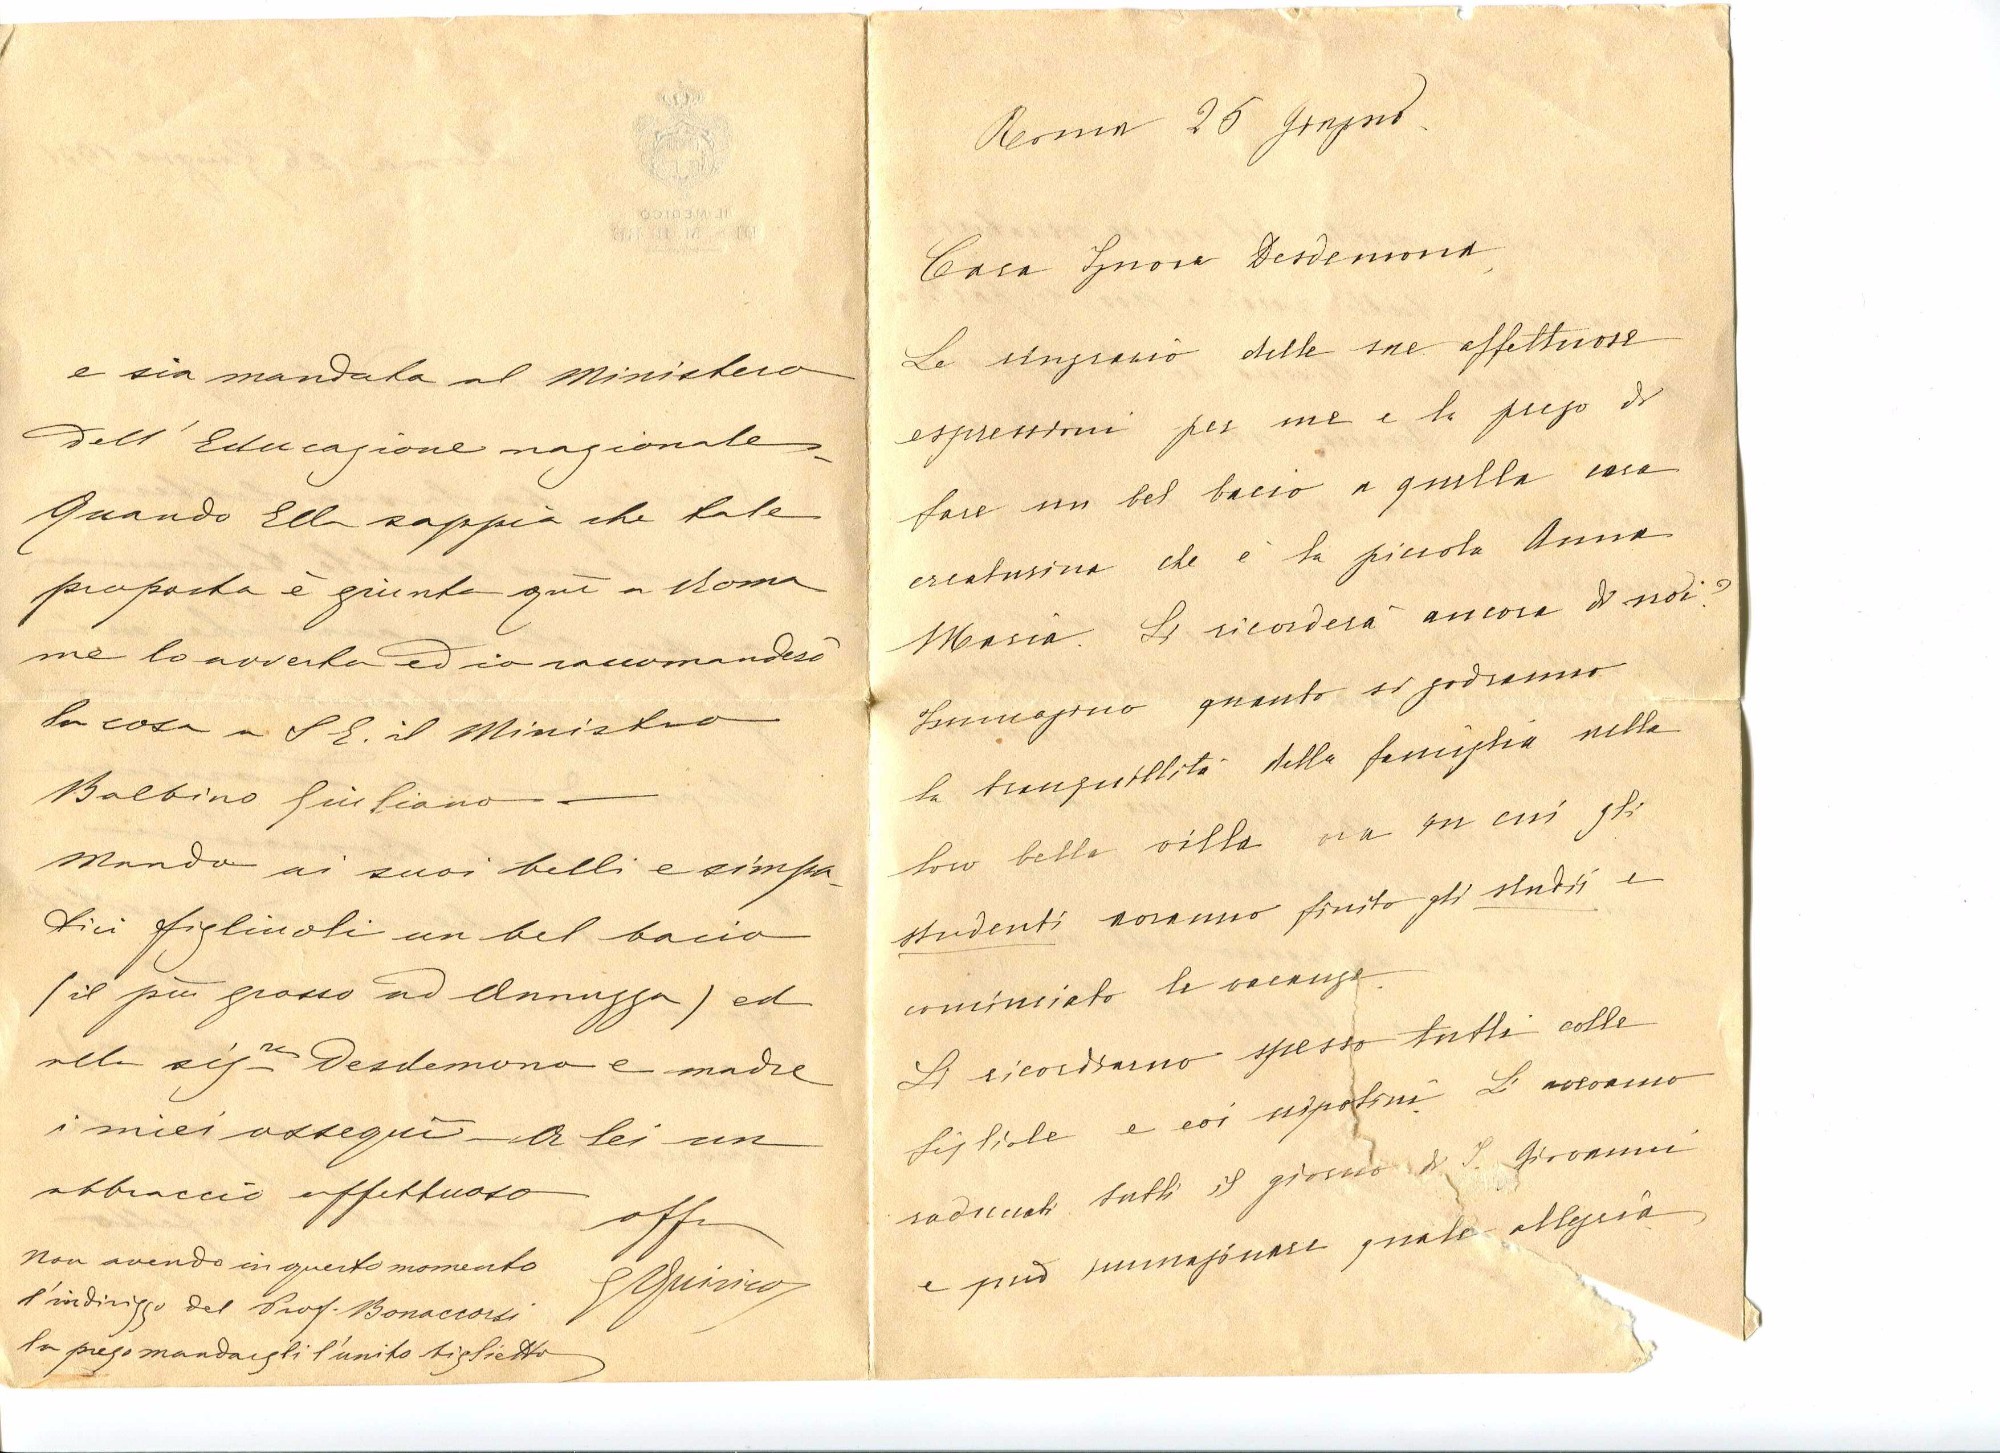 e sia mandata al Ministero
dell'Educazione nazionale.
Quando Ella sappia che tale
proposta è giunta quì a Roma
me lo avverta ed io raccomanderò
la cosa a S E. il Ministro
Balbino Giuliano —
Mando ai suoi belli e simpa-
tici figliuoli un bel bacio
(il più grosso ad Annuzza) ed
alla sig.ra Desdemona e madre
i miei ossequi — A lei un
abbraccio affettuoso
aff
G Quirico
Non avendo in questo momento
l'indirizzo del Prof. Bonaccorsi
la prego mandargli l'unito biglietto
IL MEDICO
DI S. M. IL RE
Roma 25 Giugno.
Cara Signora Desdemona,
La ringrazio delle sue affettuose
espressioni per me e la prego di
fare un bel bacio a quella cara
creaturina che è la piccola Anna
Maria. Si ricorderà ancora di noi?
Immagino quanto si godranno
la tranquillità della famiglia nella
loro bella villa ora in cui gli
studenti avranno finito gli studii e
cominciato le vacanze.
Li ricordiamo spesso tutti colle
figliole e coi nipotini. Li avevamo
radunati tutti il giorno di S. Giovanni
e può immaginare quale allegria